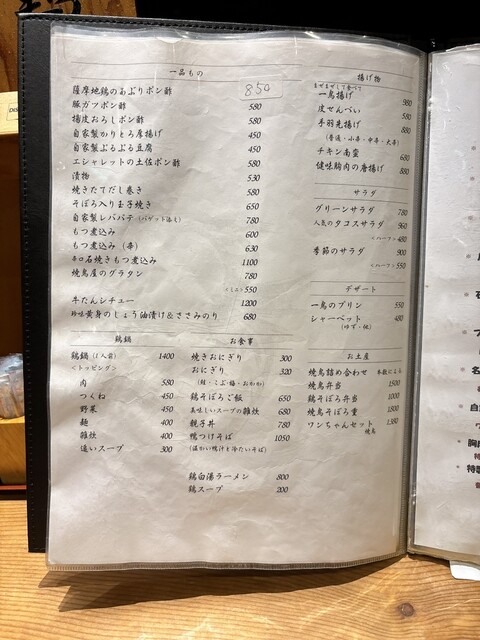 一品もの
薩摩地鶏のあぶりポン酢 850
豚ガツポン酢 580
揚皮おろしポン酢 580
自家製かりとろ厚揚げ 450
自家製ぷるぷる豆腐 450
エシャレットの土佐ポン酢 580
漬物 530
焼きたてだし巻き 580
そぼろ入り玉子焼き 650
自家製レバパテ(バゲット添え) 780
もつ煮込み 600
もつ煮込み(辛) 630
辛口石焼きもつ煮込み 1100
焼鳥屋のグラタン 780
<ミニ>550
牛たんシチュー 1200
珍味黄身のしょう油漬け&ささみのり 680
鶏鍋
鶏鍋(1人前) 1400
<トッピング>
肉 580
つくね 450
野菜 450
麺 400
雑炊 400
追いスープ 300
お食事
焼きおにぎり 300
おにぎり 320
(鮭・こぶ・梅・おかか)
鶏そぼろご飯 650
美味しいスープの雑炊 680
親子丼 780
鴨つけそば 1050
(温かい鴨汁と冷たいそば)
鶏白湯ラーメン 800
鶏スープ 200
揚げ物
まぜまぜして食べて
一鳥揚げ 980
皮せんべい 580
手羽先揚げ 880
(普通・小辛・中辛・大辛)
チキン南蛮 680
健味胸肉の唐揚げ 880
サラダ
グリーンサラダ 780
人気のタコスサラダ 960
<ハーフ>480
季節のサラダ 900
<ハーフ>550
デザート
一鳥のプリン 550
シャーベット 480
(ゆず・桃)
お土産
焼鳥詰め合わせ 本数による
焼鳥弁当 1500
鶏そぼろ弁当 1000
焼鳥そぼろ重 1800
ワンちゃんセット 1380
焼鳥